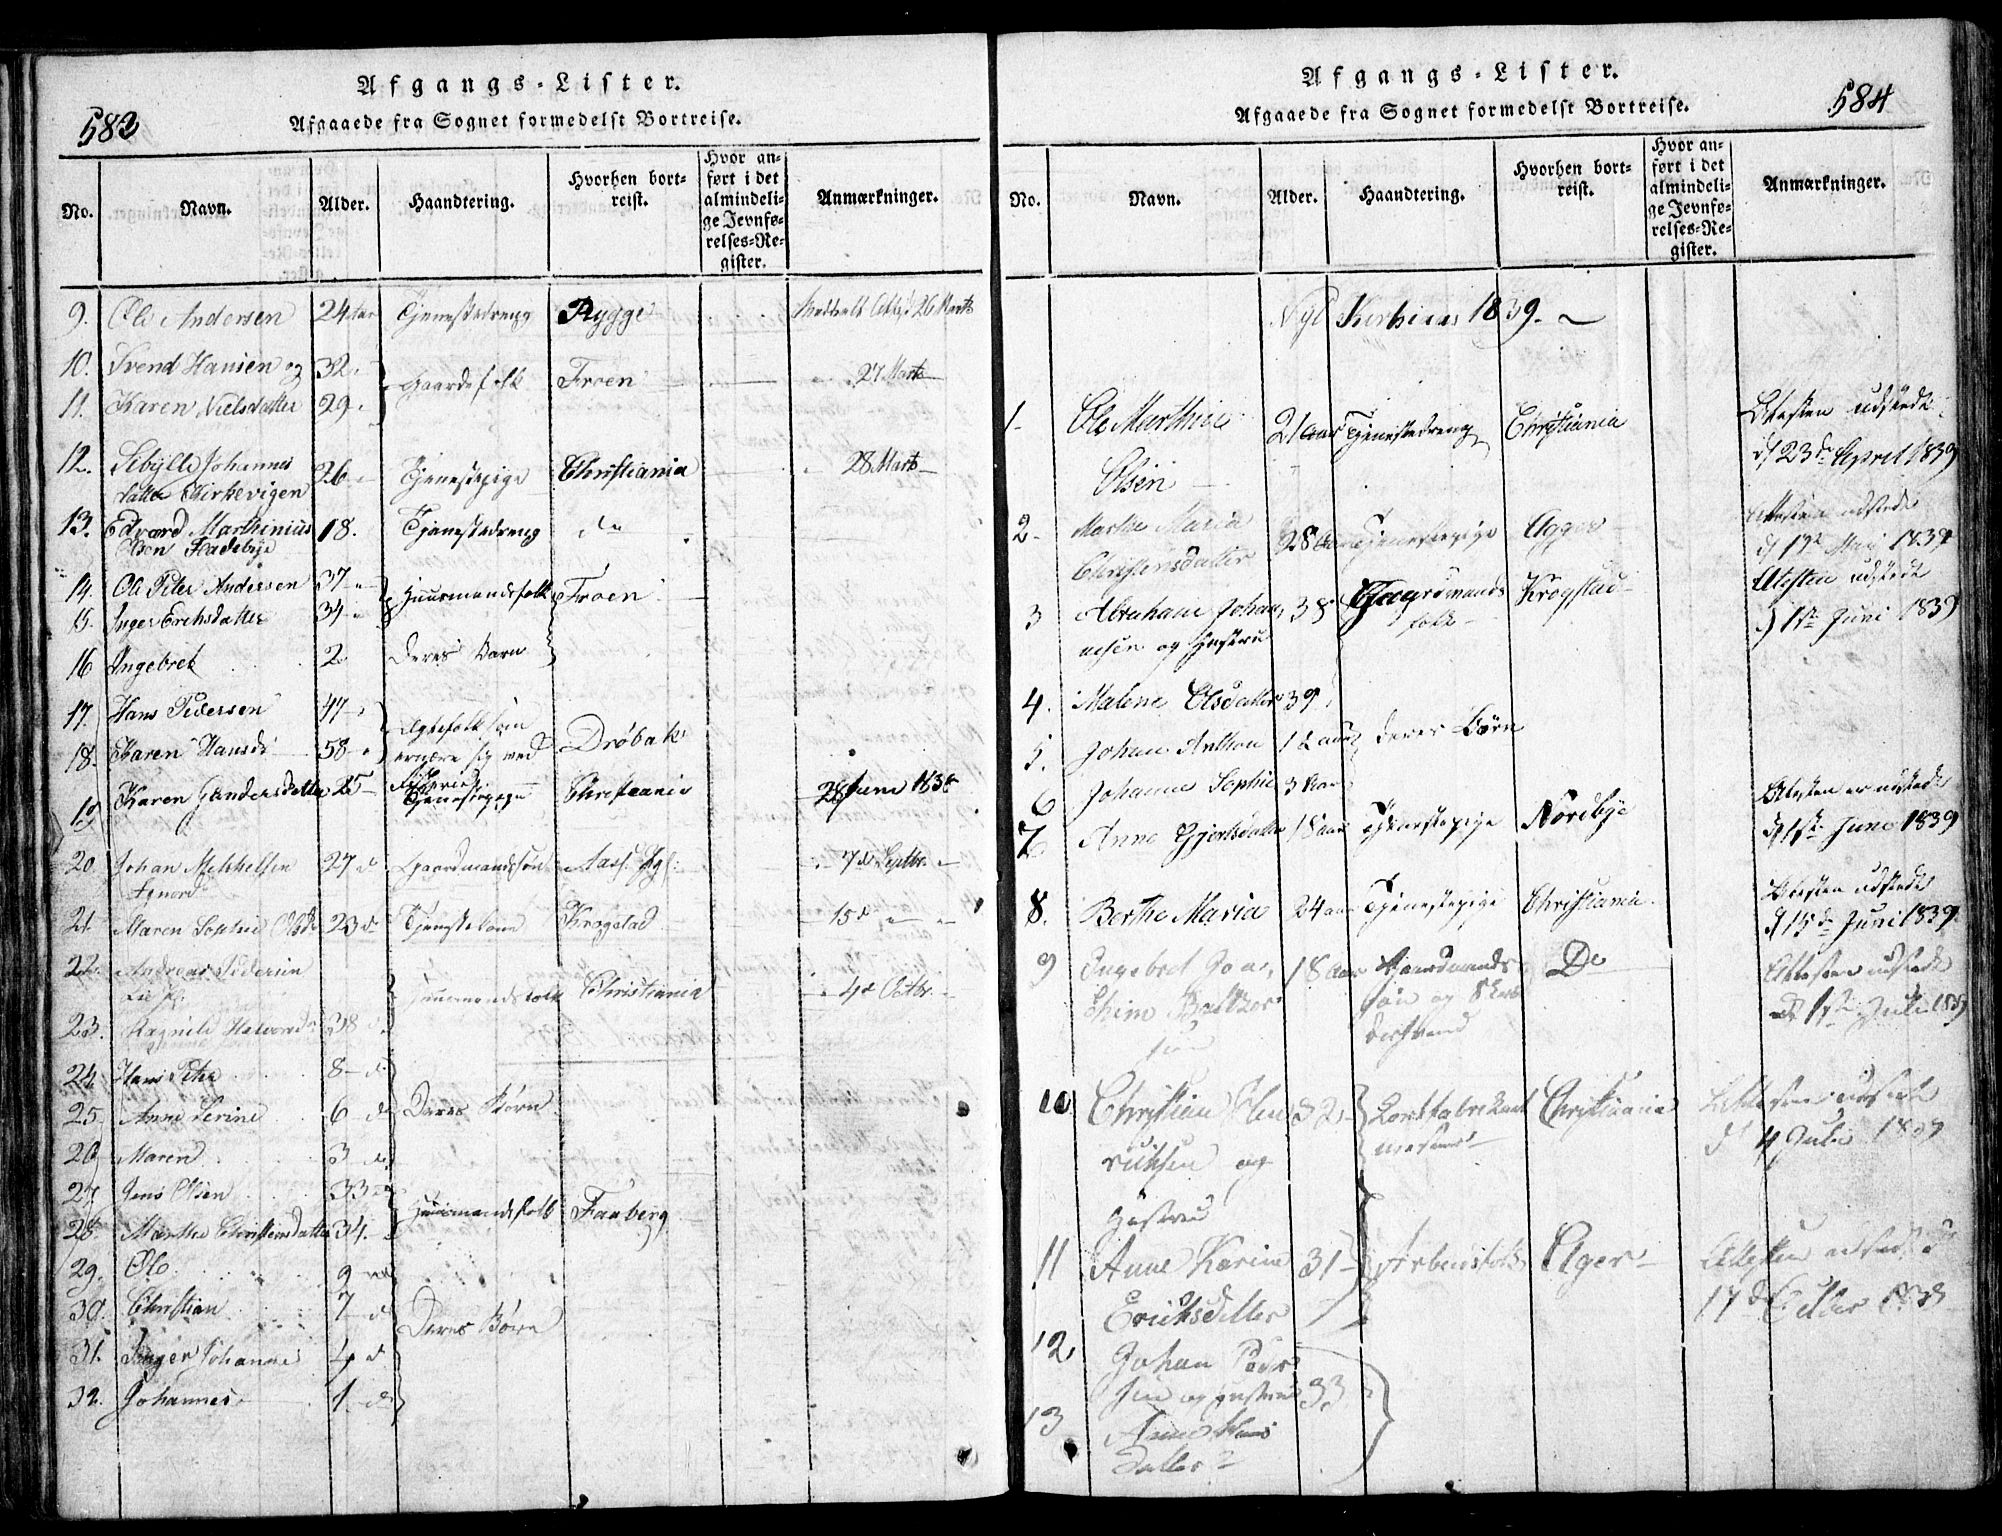 Afgangs-Lister.
583
Afgaaede fra Sognet formedelst Bortreise.
No. Navn. Alder. Haandtering. Hvorhen bortreist. Hvor anført i det almindelige Jevnførelses-Register. Anmærkninger.
9. Ole Andersen 24 Aar Tjenestedreng Rygge 26 Marts
10. Svend Hansen og 32 Gaardefolk Froen 27 Marts
11. Karen Nielsdatter 29
12. Sibylle Johannes
datter Kirkevigen 26 Tjenestepige Christiania 28 Marts
13. Edvard Marthinius 18. Tjenestedreng do
Olsen Fladebye
14. Ole Peter Andersen 37 Huusmandsfolk Froen
15. Inger Erichsdatter 34
16 Ingebret 2 deres Barn
17. Hans Pedersen 47 Ægtefolk som
18. Karen Hansd 58 ernære sig ved Drøbak
19 Karen Gundersdatter 25 Tjenestepige Christiania 28 Juni 1838
20. Johan Mikkelsen 27 d Gaardmandssøn Aas 7 d Septbr.
21. Maren Sophie Olsd 23 d Krogstad 15 d
22. Andreas Pedersen
Huusmandsfolk Christiania 4 d Octbr.
23. Ragnild Halvorsd 38 d
24. Hans Peter 8 d
25. Anne Serine 6 d Deres Børn
26 Maren 3 d
27. Jens Olsen 33 d
Huusmandsfolk Faaberg
28. Marthe Christensdatter 34.
29. Ole 9
30. Christian 7 d
Deres Børn
31. Inger Johanne 4 d
32. Johannes 1 d
Afgangs-Lister.
584
Afgaaede fra Sognet formedelst Bortreise.
No. Navn. Alder. Haandtering. Hvorhen bortreist. Hvor anført i det almindelige Jevnførelses-Register. Anmærkninger.
Nyt Kirkeaar 1839.
1. Ole Marthin 21 aar Tjenestedreng Christiania Attesten udstedt
Olsen d 23de April 1839
2. Marthe Maria 28 Aar Tjenestepige Agger Attesten udstedt
Christensdatter d 1ste Mai 1839
3 Abraham Johan 38 Gaardmands Krogstad Attesten udstedt
nesen og Hustru folk d 1ste Juni 1839
4. Malene Olsdatter 39
5. Johan Anthon 12 aar deres Børn
6 Johanne Sophie 3 Aar
7 Anne Gjertsdatter 18 aar Tjenestepige Nordbye Attesten er udstedt
d 1ste Juni 1839
8. Berthe Maria 24 aar Tjenestepige Christiania Attesten udstedt
d 15de Juni 1839
9 Ingebret Joa 18 Aar Gaardmands Do Attesten udstedt
chim Balthor søn og d 1ste Juli 1839
sen
10 Christian Hen 32 Christiania Attesten udstedt
richsen og d 4 Julii 1839
Hustru
11 Anne Karine 31 Arbeidsfolk Ager Attesten udstedt d
Erichsdatter 17 d Octbr 1839
12. Johan Peder
sen og Hustru 33
13 Anne Hans
datter